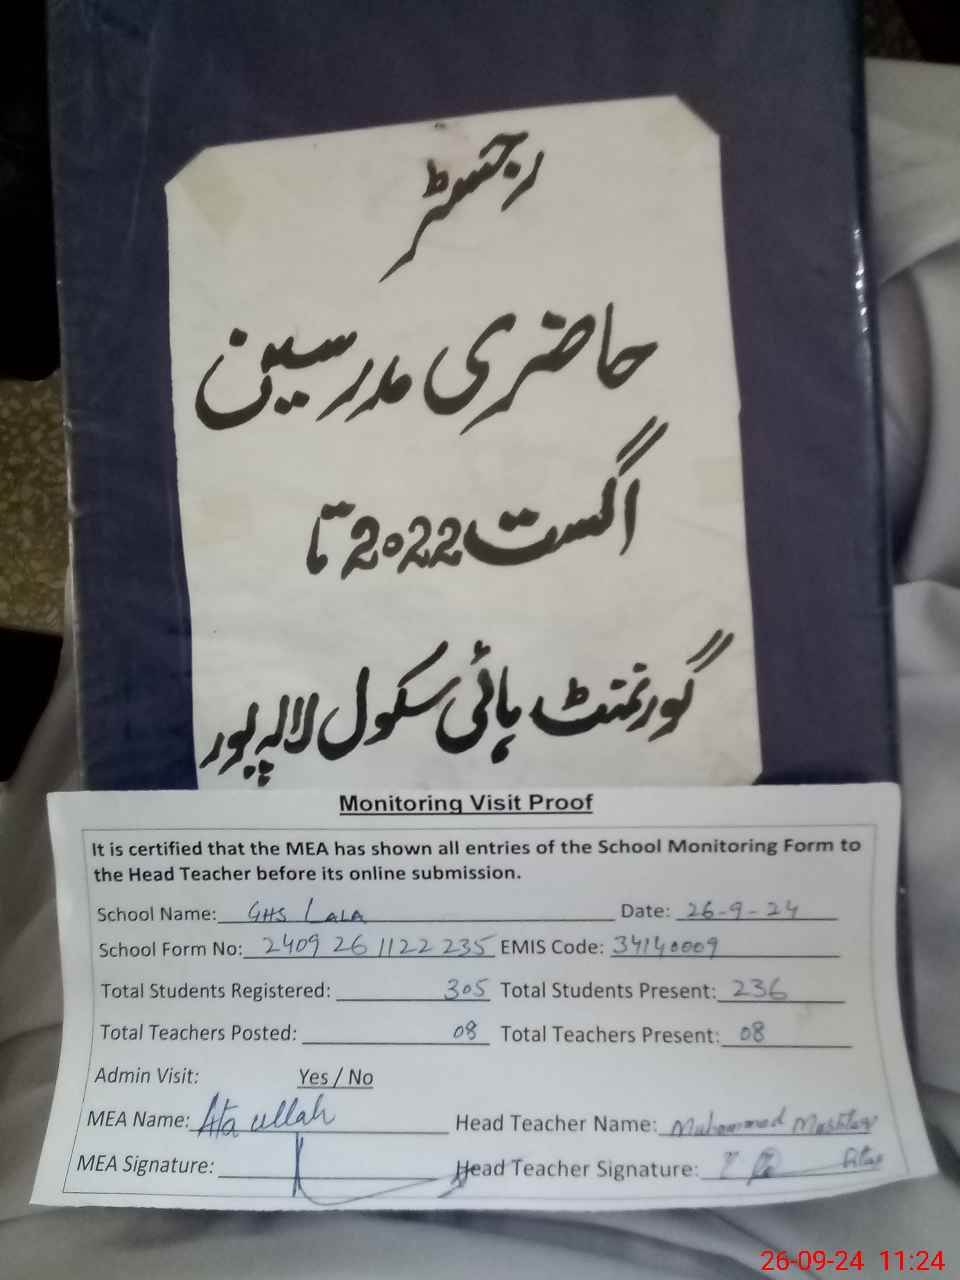 رجسٹر
حاضری مدرسین
اگست 2022 تا
گورنمنٹ ہائی سکول لالہ پور
Monitoring Visit Proof
It is certified that the MEA has shown all entries of the School Monitoring Form to
the Head Teacher before its online submission.
School Name: GHS LALA Date: 26-9-24
School Form No: 2409 26 1122 235 EMIS Code: 34140009
Total Students Registered: 305 Total Students Present: 236
Total Teachers Posted: 08 Total Teachers Present: 08
Admin Visit: Yes / No
MEA Name: Ata ullah Head Teacher Name: Muhammad
MEA Signature: Head Teacher Signature:
26-09-24 11:24